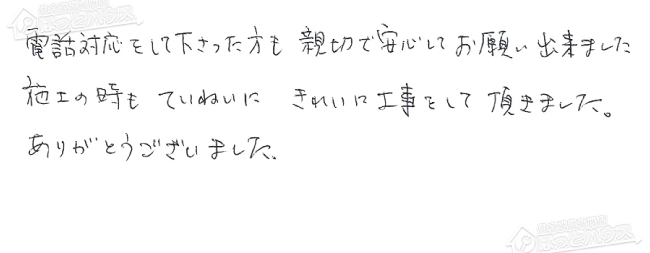 電話対応をして下さった方も 親切で安心してお願い出来ました
施工の時も ていねいに きれいに工事をして頂きました。
ありがとうございました。